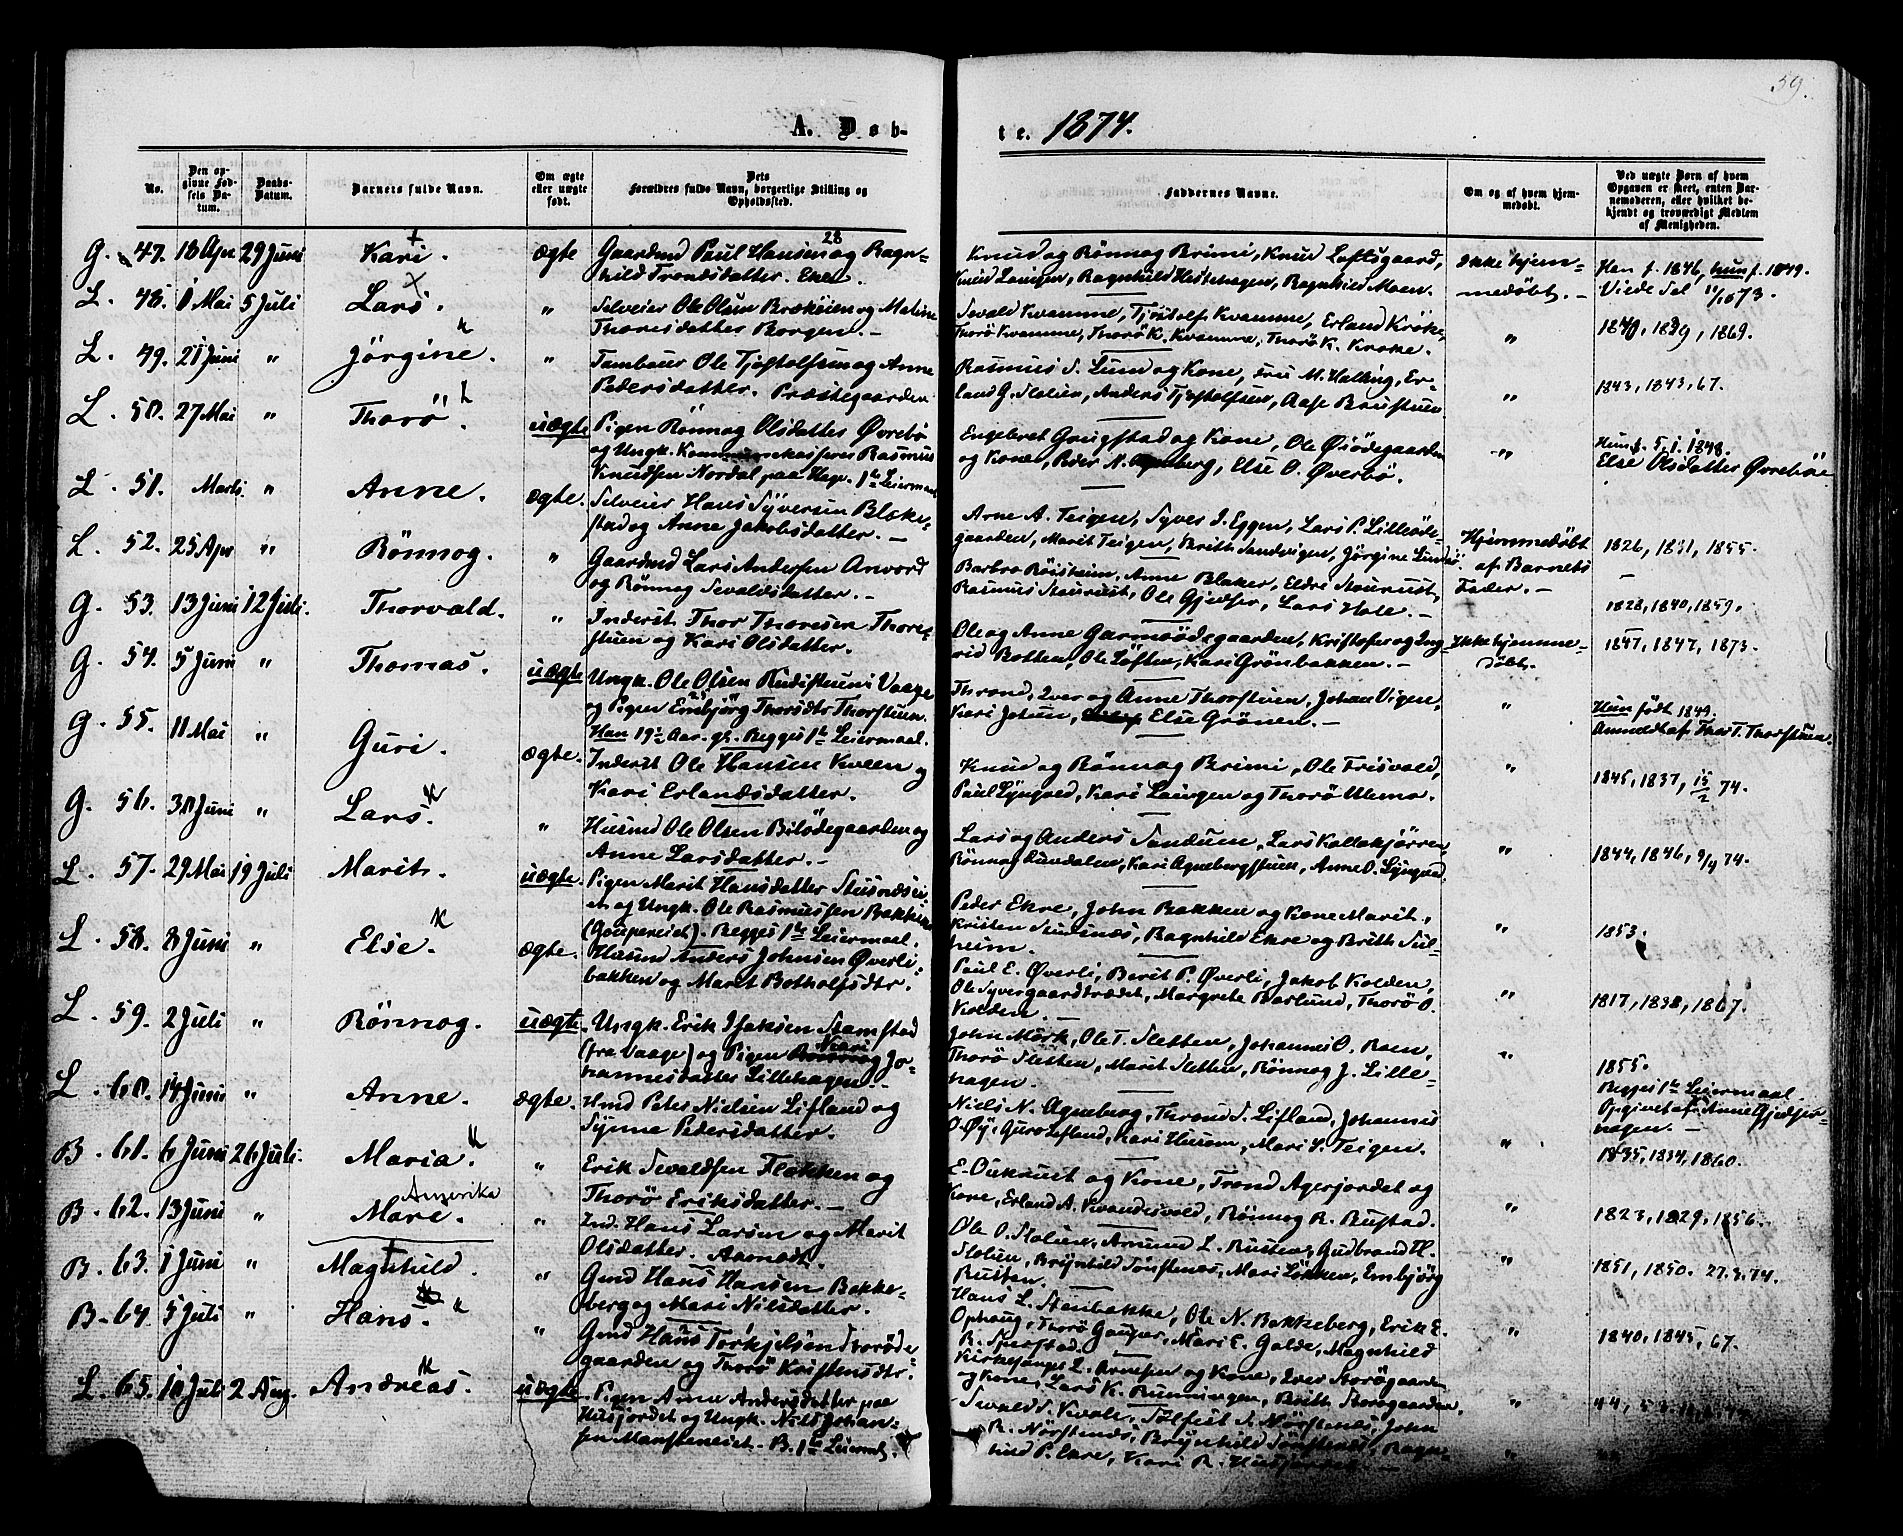 59.
A. Døb-
te. 1874.
No.
Den opgivne Fødsels Datum.
Daabs-Datum.
Barnets fulde Navn.
Om ægte eller uægte født.
Dets Forældres fulde Navn, borgerlige Stilling og Opholdssted.
Faddernes Navne.
Om og af hvem hjemmedøbt.
Ved uægte Børn af hvem Opgaven er skeet, enten Barnemoderen, eller hvilket bekjendt og troværdigt Medlem af Menigheden.
G. 47. 18 Apr 29 Juni Kari. ægte Gaardmd Paul Hansen og Ragn-
hild Trondsdatter.
Knud og Rönnog Brimi, Knud Loftsgaard,
Ragnhild Hestehagen, Ragnhild Moen.
Ikke hjem-
medøbt. -
Han f. 1846, hun f. 1849.
L. 48. 1 Mai 5 Juli Lars. " Selveier Ole Olsen
Thoresdatter Borgen. -
Sevald Kvamme, Tjöstolf Kvamme, Erland Kröke,
Thorö Kvamme, Thorö K. Kvamme, Thorö K. Kroke.
"
1840, 1839, 1869.
L. 49. 21 Juni " Jörgine. " Tambour Ole Tjøstolfsen og Anne
Pedersdatter. Præstegaarden
Rasmus S. Lund og Kone, Er-
land G. Stolen, Anders Tjøstolfsen, Aase
"
1843, 1843, 67.
L. 50. 27 Mai " Thorö. uægte Pigen Rönnog Olsdatter Øvrebö
og Ungk. Rasmus
Knudsen Nordal paa Hage. 1te Leiermaal
Engebret Gaugstad og Kone, Ole
og Kone, Peder N. Aaneberg, Else O. Øverbö.
"
Hun f. 5.1.1848.
Else Olsdatter Øvreböe
L. 51. Marts " Anne. ægte. Selveier Hans Syversen Blake-
stad og Anne Jakobsdatter. -
Arne A. Teigen, Syver J. Eggen, Lars P. Lilleöde-
gaarden, Marit Teigen, Brith Sandvigen, Jörgine
Hjemmedøbt
af Barnets
Fader. -
1826, 1831, 1855.
L. 52. 25 Apr " Rönnog. " Gaardmd Lars Andersen Anvord
og Rönnog Sevaldsdatter. -
Barbro Röisheim, Anne Blaker, Eldri Staurust,
Rasmus Staurust, Ole Gjeitser, Lars Hole. -
1828, 1840, 1859.
G. 53. 13 Juni 12 Juli. Thorvald. " Inderst Thor Thoresen Thore-
stuen og Kari Olsdatter.
Ole og Anne Garmöödegaarden, Kristofer og Ing-
rid Botten, Ole Löften, Kari Grönbakken. -
Ikke hjemme-
döbt.
1847, 1847, 1873.
G. 54. 5 Juni " Thomas. uægte Ungk. Ole Olsen Vaage
og Pigen Embjörg Thorsdtr Thorstuen.
Begges 1te Leiermaal.
Thrond, Iver og Anne Thorstuen, Johan Vigen,
Kari Jotun, Else Grönen. -
"
Hun født 1849.
Anmeldt af Thor T. Thorstuen.
G. 55. 11 Mai " Guri. ægte. Inderst Ole Hansen Kveen og
Kari Erlandsdatter.
Knud og Rönnog Brimi, Ole Frisvold,
Paul Lyngved, Kari Laingen og Thorö Ulemo.
"
1845, 1837, 15/2 74.
G. 56. 30 Juni " Lars. " Husmd Ole Olsen og
Anne Larsdatter. -
Lars og Anders Sandum, Lars
Rönnog Lundalen, Kari Anne O. Lyngved.
"
1844, 1846, 9/4 74.
L. 57. 29 Mai 19 Juli Marit. uægte. Pigen Marit Hansdatter
og Ungk. Ole Rasmussen Bakken
Begges 1te Leiermaal.
Peder Ekre, John Bakken og Kone Marit,
Ragnhild Ekre og Brith Sul-
heim.
"
1853.
L. 58. 8 Juni " Else. ægte. Husmd Anders Johnsen Øverli-
bakken og Marit Botholfsdtr.
Paul E. Øverli, Berit P. Øverli, Jakob Kolden,
Ole Syvergaardtrædet, Margrete Barlund, Thorö O.
Kolden. -
"
1817, 1838, 1867.
L. 59. 2 Juli " Rönnog. uægte. Ungk. Erik Isaksen Stamstad
(fra Vaage) og Pigen Jo-
hannesdatter Lillehagen. -
John Mörk, Ole T. Sletten, Johannes O. Roen,
Thorö Sletten, Marit Sletten, Rönnog J. Lille-
hagen.
"
1855.
Begges 1te Leiermaal.
L. 60. 14 Juni " Anne. ægte. Hmd Peter Nielsen Lifland og
Synne Pedersdatter.
Niels N. Aaneborg, Thrond S. Lifland, Johannes
O. Øy, Guro Lifland, Kari Husom, Mari S. Teigen.
"
1835, 1834, 1860.
B. 61. 6 Juni 26 Juli. Maria. " Erik Sevaldsen Flækken og
Thorö Eriksdatter. -
E. Oukrust og Kone, Trond Agerjordet og
Kone, Erland A. Kvandesvold, Rönnog R. Rustad.
"
1823, 1829, 1856.
B. 62. 13 Juni " Mari. Amerika " Ind. Hans Larsen og Marit
Olsdatter.
Ole O. Stolen, Amund L. Rusten, Gudbrand H.
Stolen, Brynhild Tönstenes, Mari Løkken, Embjörg
Rusten.
"
1851, 1850. 27.3.74.
B. 63. 1 Juni " Magnhild. " Gmd Hans Hansen Bakke-
berg og Mari Nilsdatter.
Hans L. Stenbakke, Ole N. Bakkeberg, Erik E.
Ophaug, Thorö Gauper, Mari E. Galde, Magnhild
R. Sperstad.
"
1840, 1845, 67.
B. 64. 5 Juli " Hans. " Gmd Hans Torkjelsen Storöde-
gaarden og Thorö Kristensdtr.
Kirkesanger L. Arnesen og Kone, Iver Storögaarden
og Kone, Lars K. Runningen, Brith Storögaarden.
"
L. 65. 10 Juli 2 Aug. Andreas. uægte. Pigen Anne Andersdatter paa
Husjordet og Ungk. Nils Johan-
sen B. 1te Leierm.
Sevald S. Kvale, Sølfest S. Nörstenes, John
R. Nörstenes, Brynhild Tönstenes, Ragn-
hild P. Kari R. Husjordet. -
"